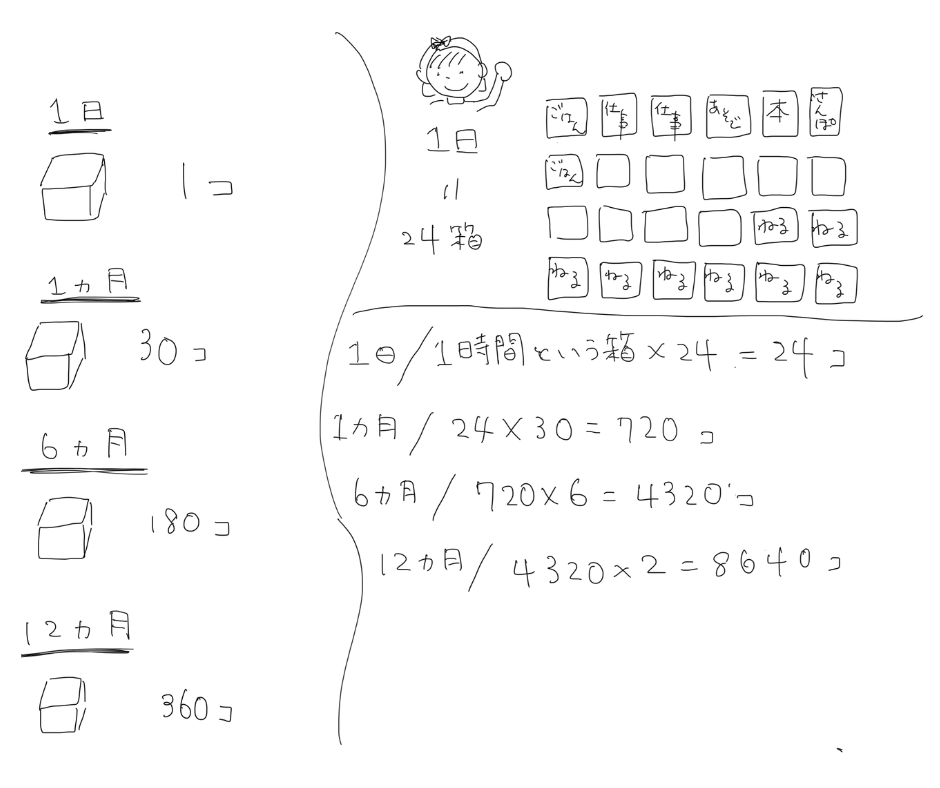 1日
1コ
1ヵ月
30コ
6ヵ月
180コ
12ヵ月
360コ
1日
=
24箱
ごはん 仕事 仕事 あそぶ 本 さんぽ
ごはん
ねる ねる
ねる ねる ねる ねる ねる ねる
1日/1時間という箱×24=24コ
1ヵ月/24×30=720コ
6ヵ月/720×6=4320コ
12ヵ月/4320×2=8640コ